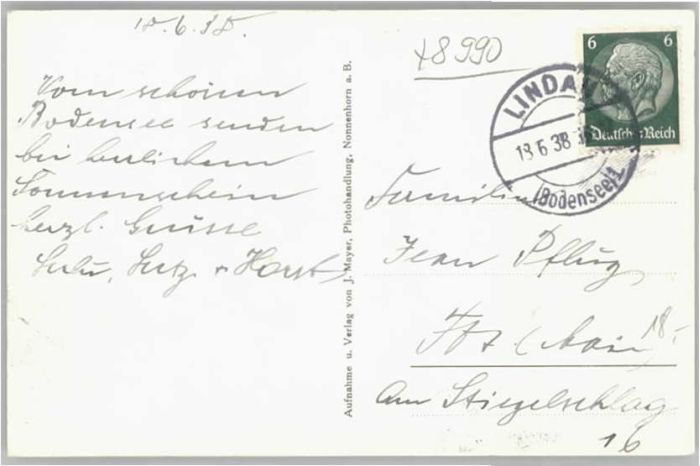 18.6.38.
Vom schönen
Bodensee senden
bei herrlichem
Sonnenschein
herzl. Grüsse
Lulu, Lutz + Horst
Aufnahme u. Verlag von J. Mayer, Photohandlung, Nonnenhorn a. B.
+8990
6 6
Deutsches Reich
LINDAU
18.6.38
(Bodensee) 1
Familie
Jean Pflug
Ffm (Main)
18.-
Am Stiegelschlag
16